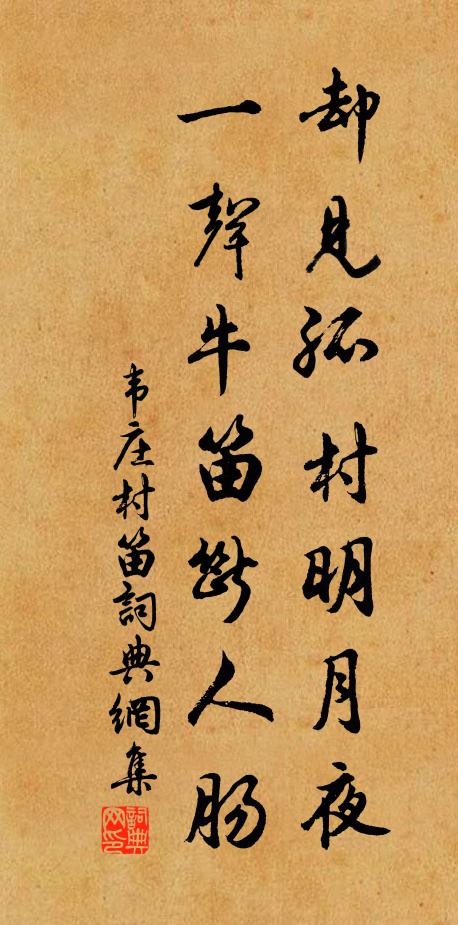 却見孤村明月夜
一聲牛笛斷人腸
韦庄村笛詞典網集
詞典网印